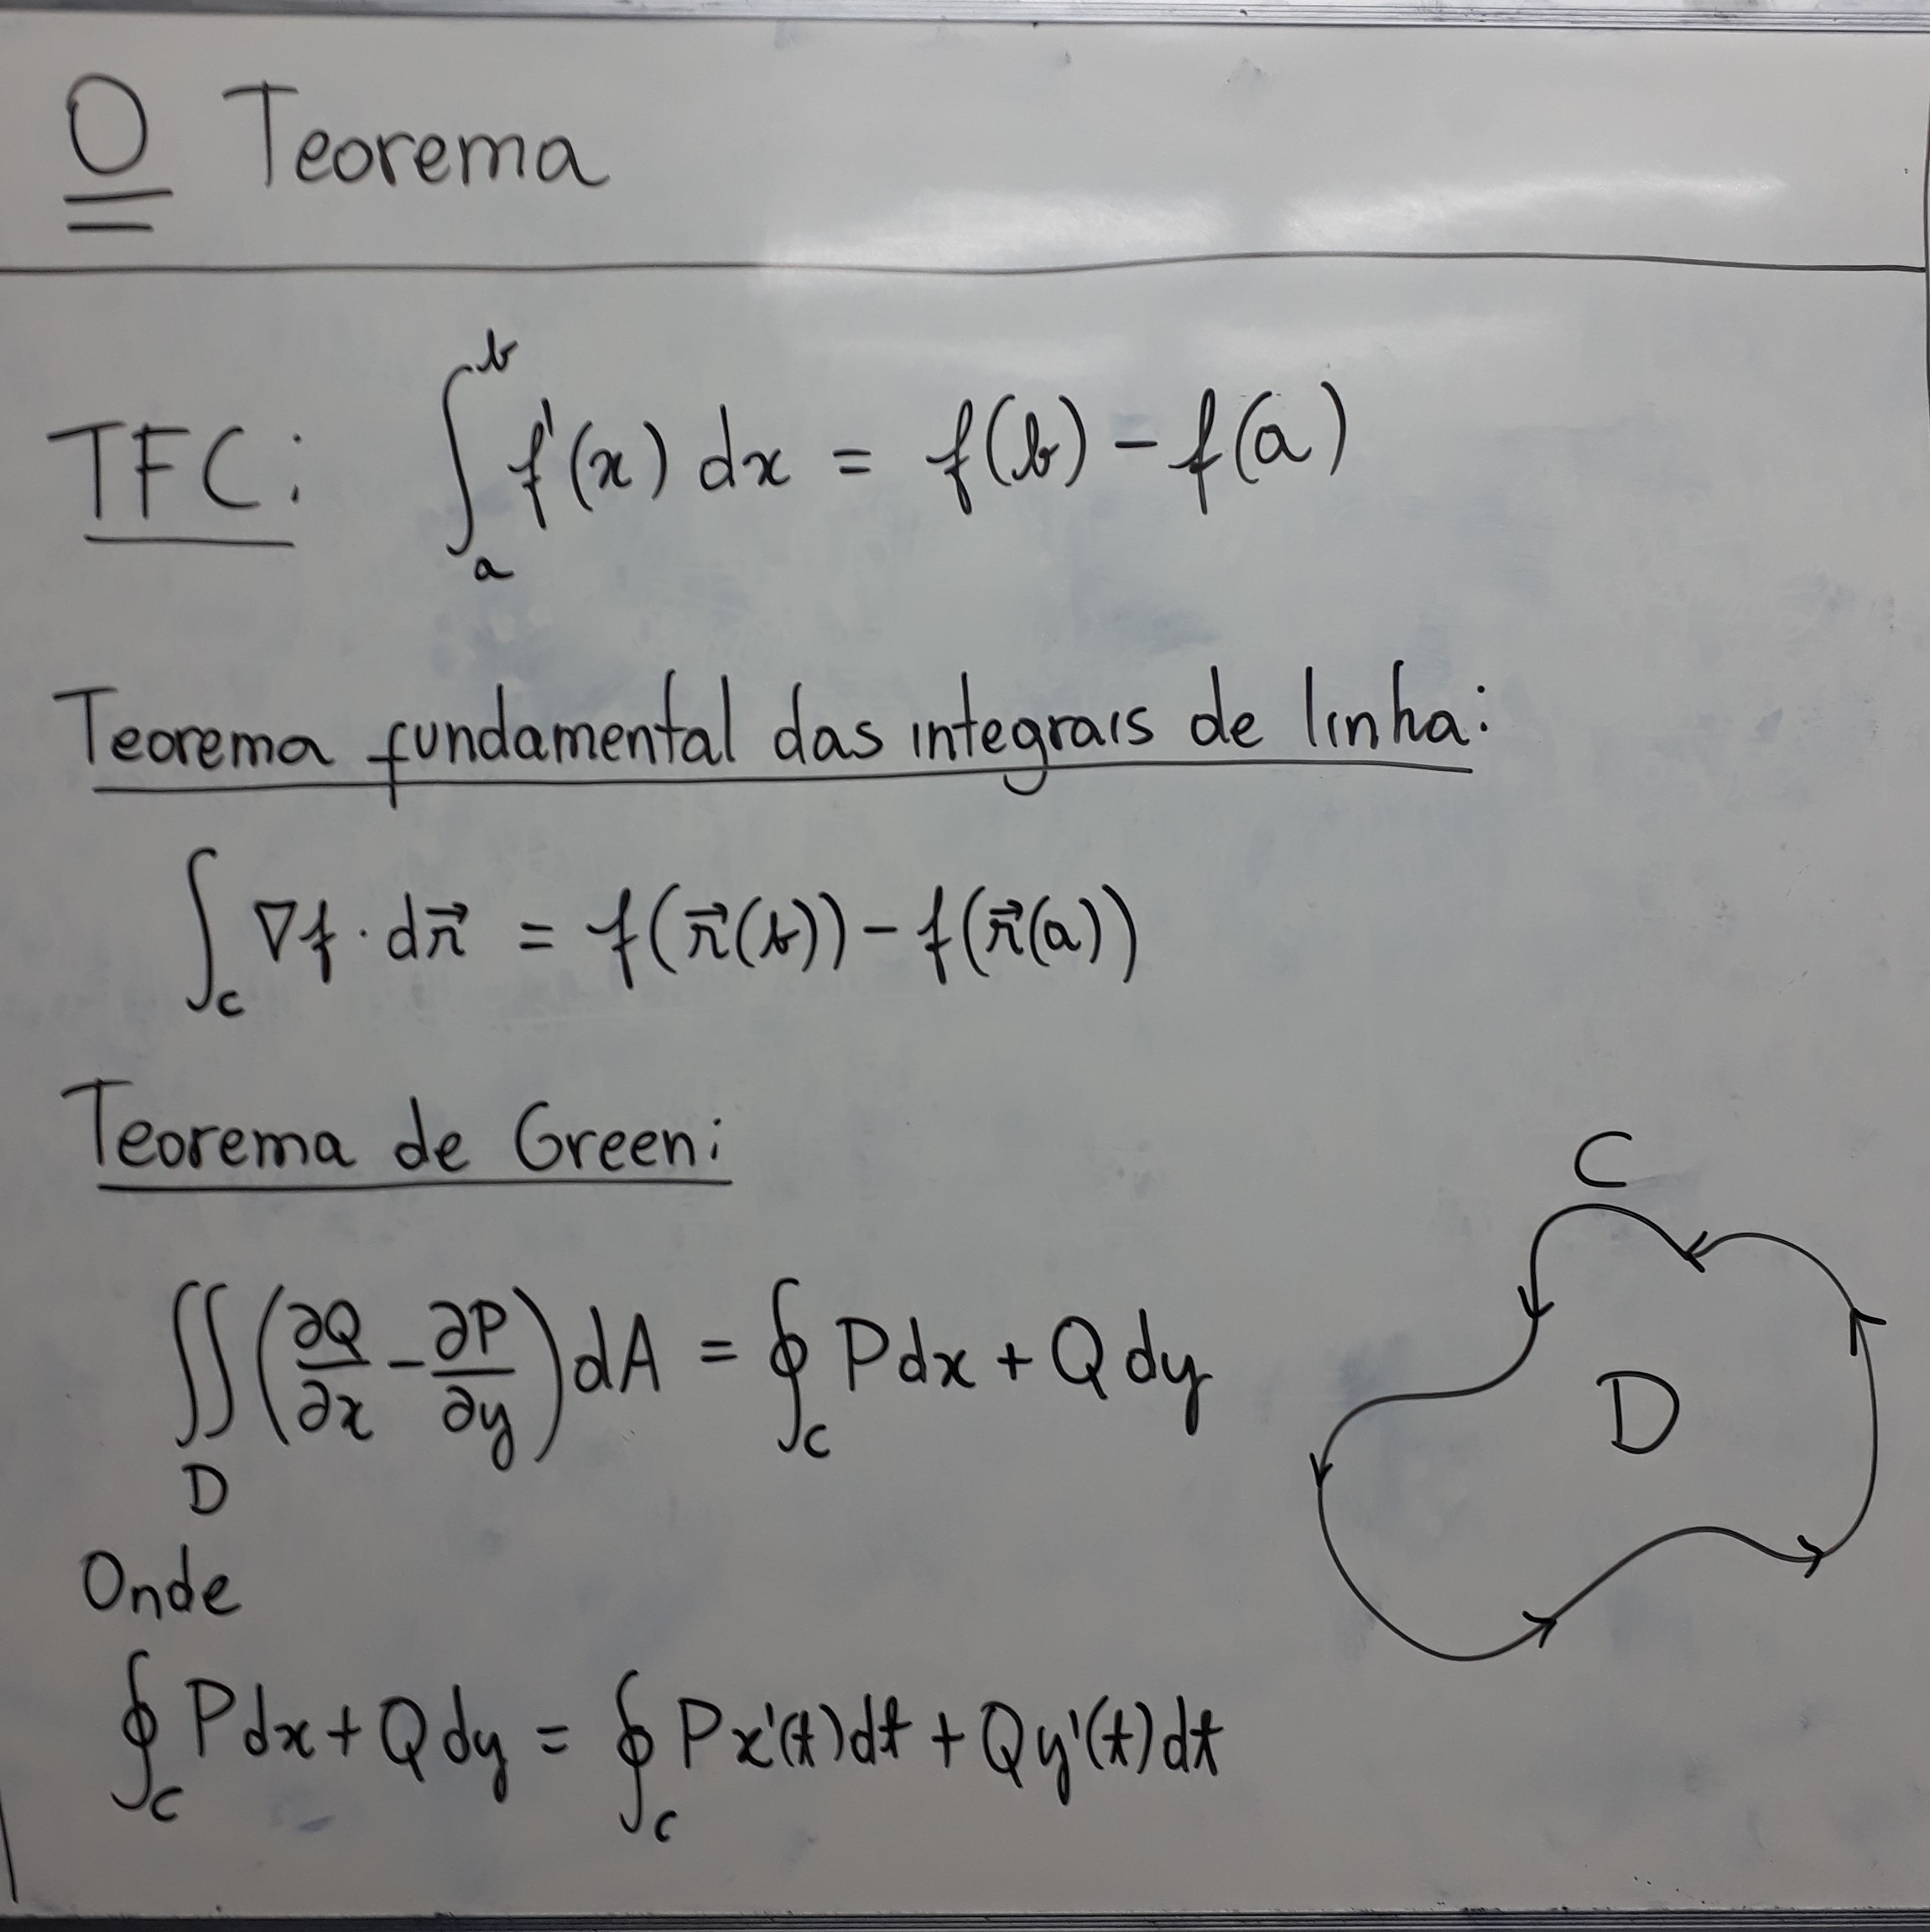 O Teorema
TFC: ∫_a^b f'(x) dx = f(b) - f(a)
Teorema fundamental das integrais de linha:
∫_C ∇f · dr⃗ = f(r⃗(b)) - f(r⃗(a))
Teorema de Green:
∬_D (∂Q/∂x - ∂P/∂y) dA = ∮_C P dx + Q dy
C
D
Onde
∮_C P dx + Q dy = ∮_C P x'(t) dt + Q y'(t) dt